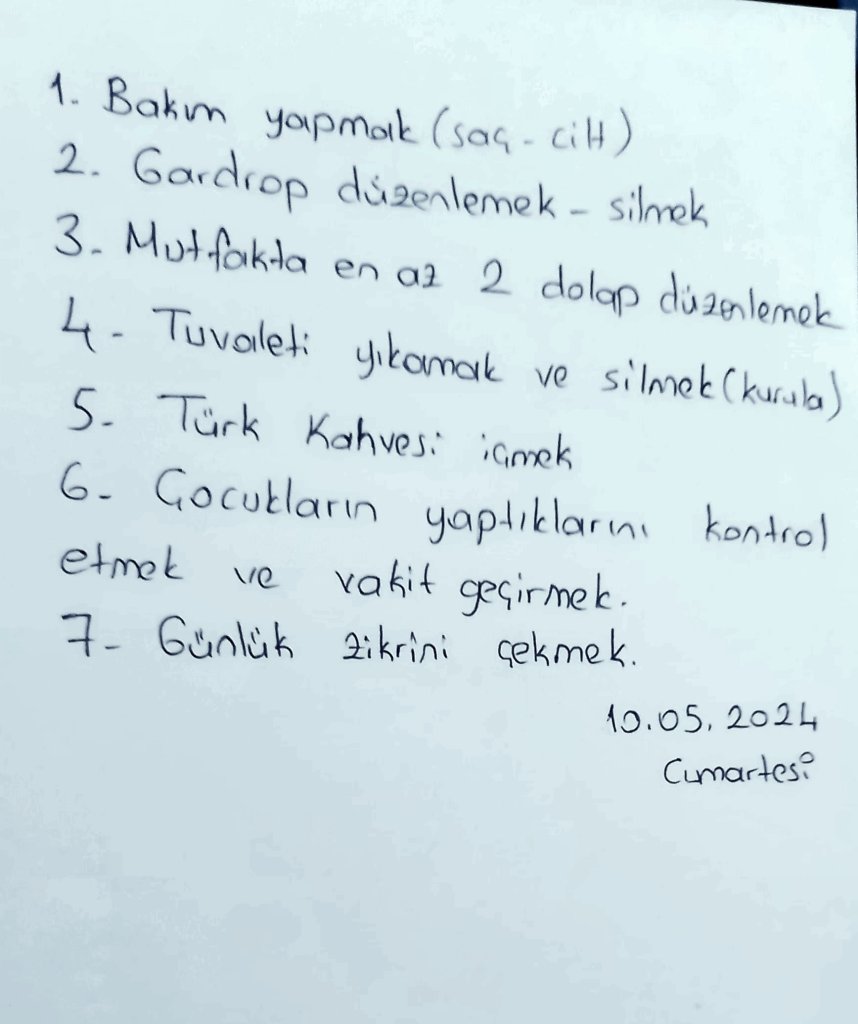 1. Bakım yapmak (saç - cilt)
2. Gardrop düzenlemek - silmek
3. Mutfakta en az 2 dolap düzenlemek
4 - Tuvaleti yıkamak ve silmek (kurula)
5 - Türk Kahvesi içmek
6 - Çocukların yaptıklarını kontrol
etmek ve vakit geçirmek.
7 - Günlük zikrini çekmek.
10.05.2024
Cumartesi